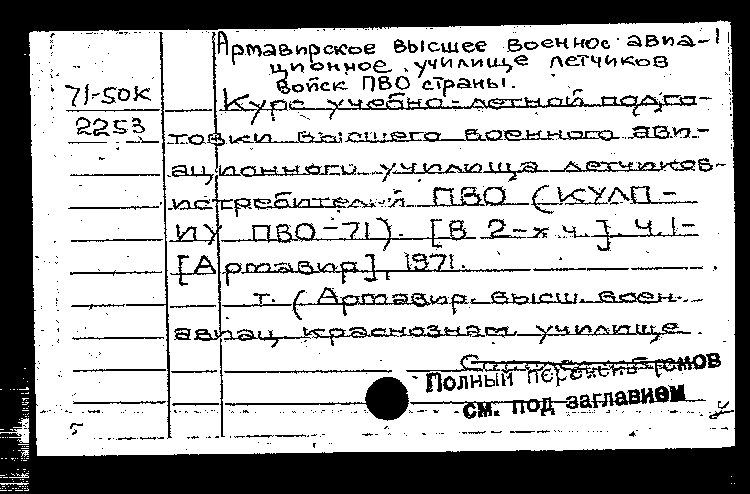 Армавирское высшее военное авиа-
ционное училище летчиков
войск ПВО страны.
71-50К
Курс учебно-летной подго-
2253
товки высшего военного ави-
ационного училища летчиков-
истребителей ПВО (КУЛП-
ИУ ПВО-71). [В 2-х ч.]. Ч.1-
[Армавир], 1971.
т. (Армавир. высш. воен.
авиац. краснознам. училище
Полный перечень томов
см. под заглавием
5